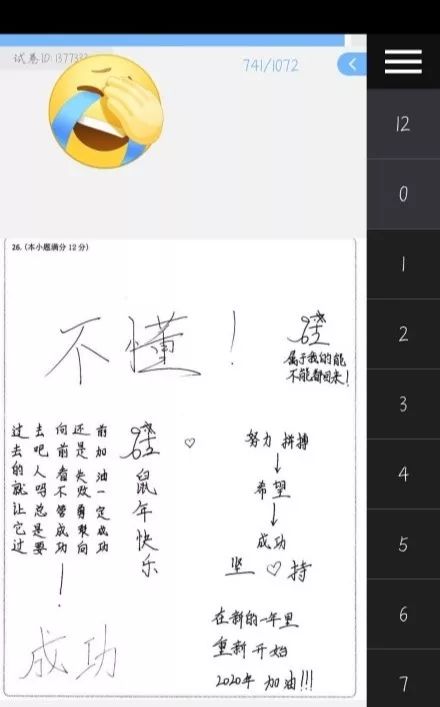 试卷ID: 137733
741/1072
12
0
1
2
3
4
5
6
7
26. (本小题满分 12 分)
不懂！
属于我的能
不能都回来!
过去的就让它过
去吧人吗总是要
向前看不管成功
还是失败勇敢向
前加油一定成功
!
鼠年快乐
努力 拼搏
希望
成功
坚♡持
成功
在新的一年里
重新开始
2020年 加油!!!